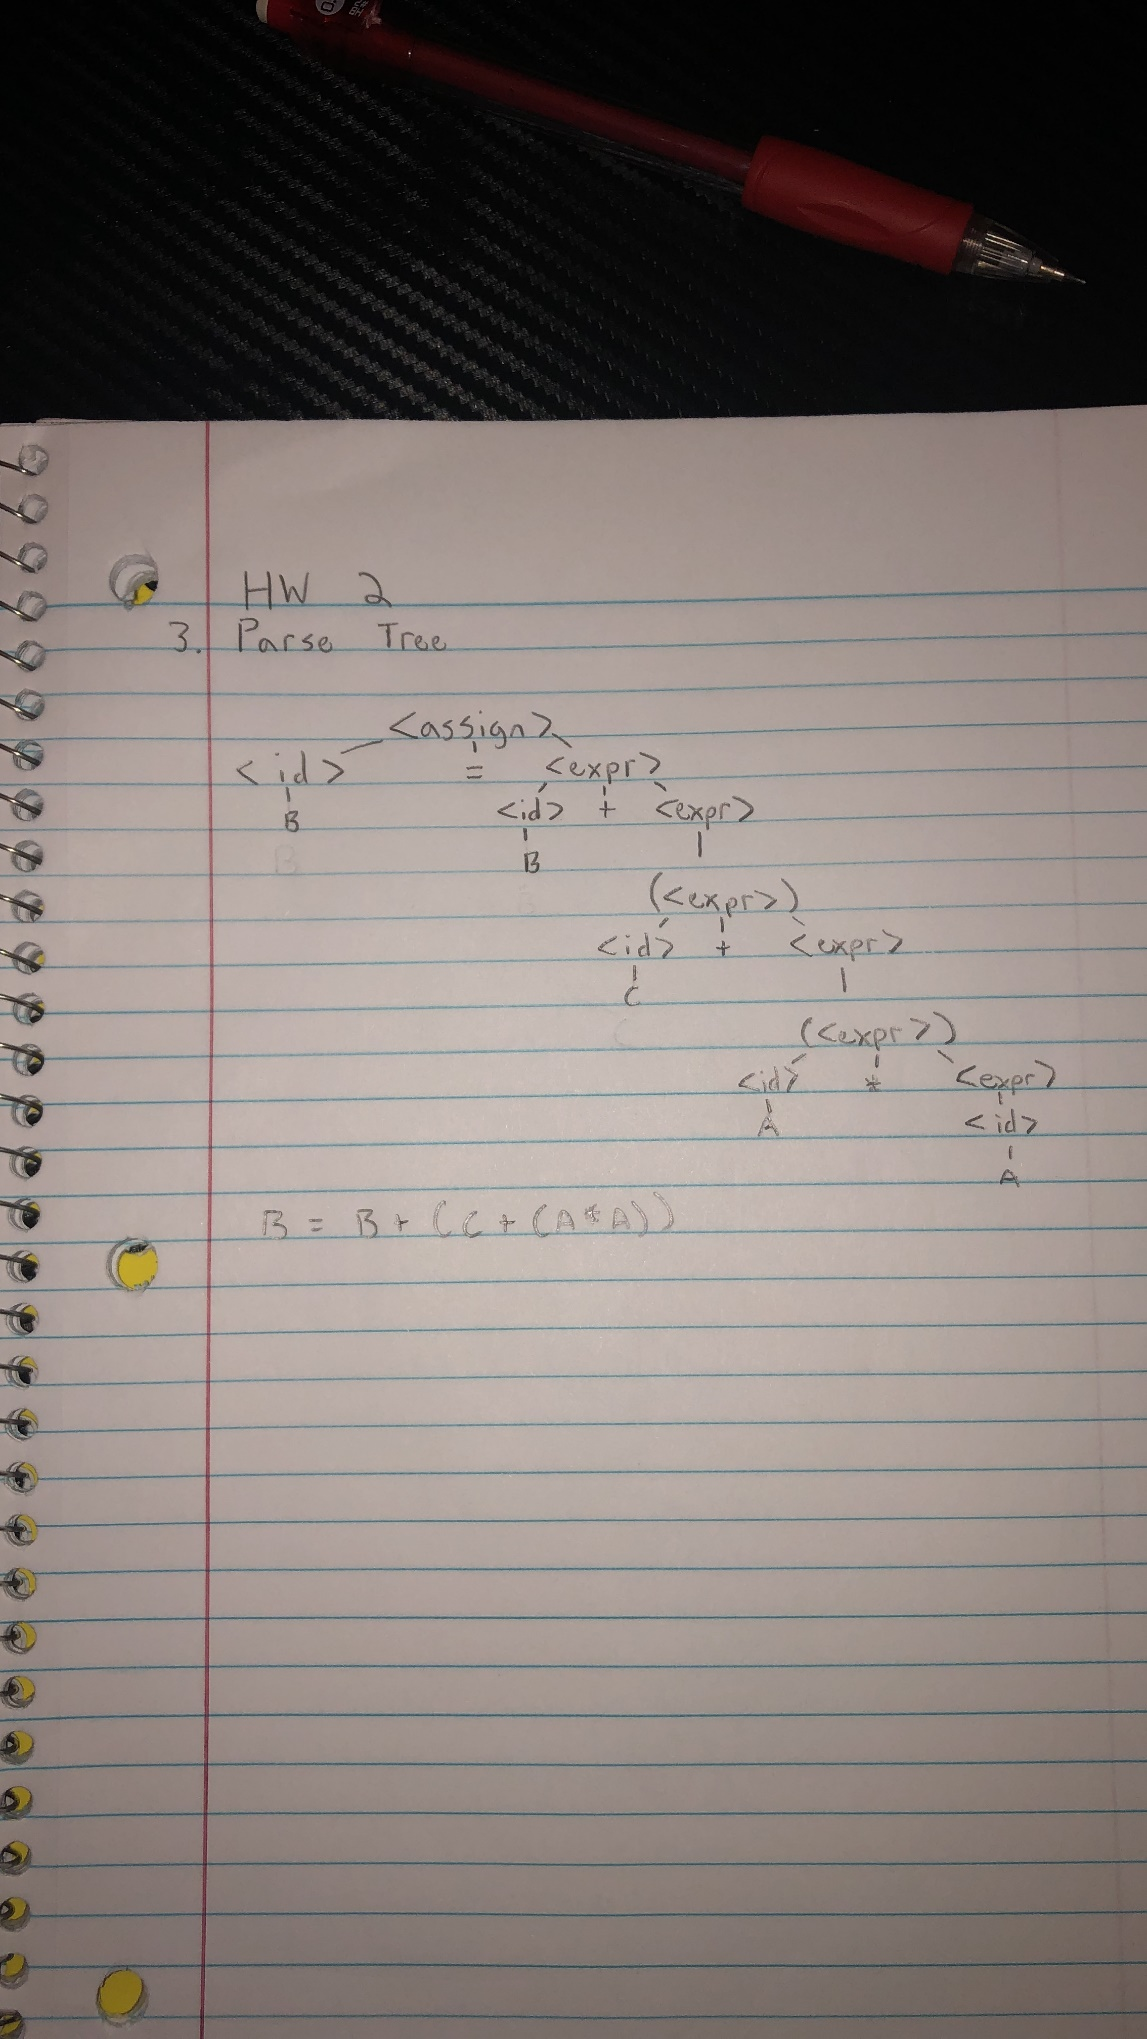 HW 2
3. Parse Tree
<assign>
<id> = <expr>
B <id> + <expr>
B
(<expr>)
<id> + <expr>
C
(<expr>)
<id> * <expr>
A <id>
A
B = B + (C + (A * A))